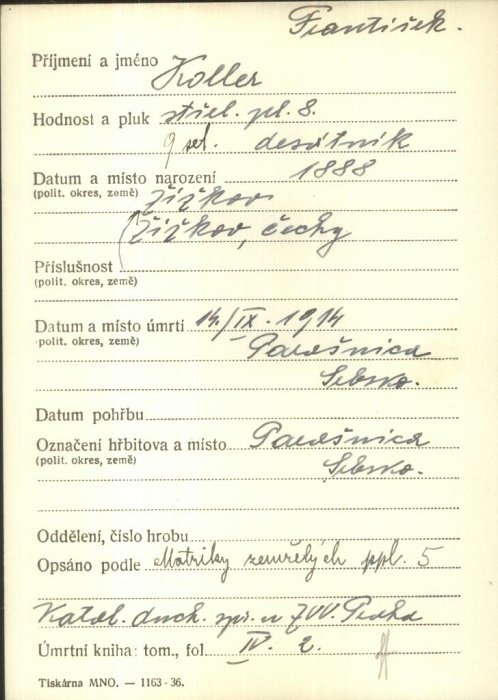 František.
Příjmení a jméno Koller
Hodnost a pluk střel. pl. 8.
9 set. desátník
Datum a místo narození 1888
(polit. okres, země) Žižkov
Žižkov, Čechy
Příslušnost
(polit. okres, země)
Datum a místo úmrtí 14./IX. 1914
(polit. okres, země) Parašnica
Srbsko.
Datum pohřbu
Označení hřbitova a místo Parašnica
(polit. okres, země) Srbsko.
Oddělení, číslo hrobu
Opsáno podle Matriky zemřelých ppl. 5
Katol. duch. spr. u ZVV. Praha
Úmrtní kniha: tom., fol. IV. 2.
Tiskárna MNO. — 1163-36.